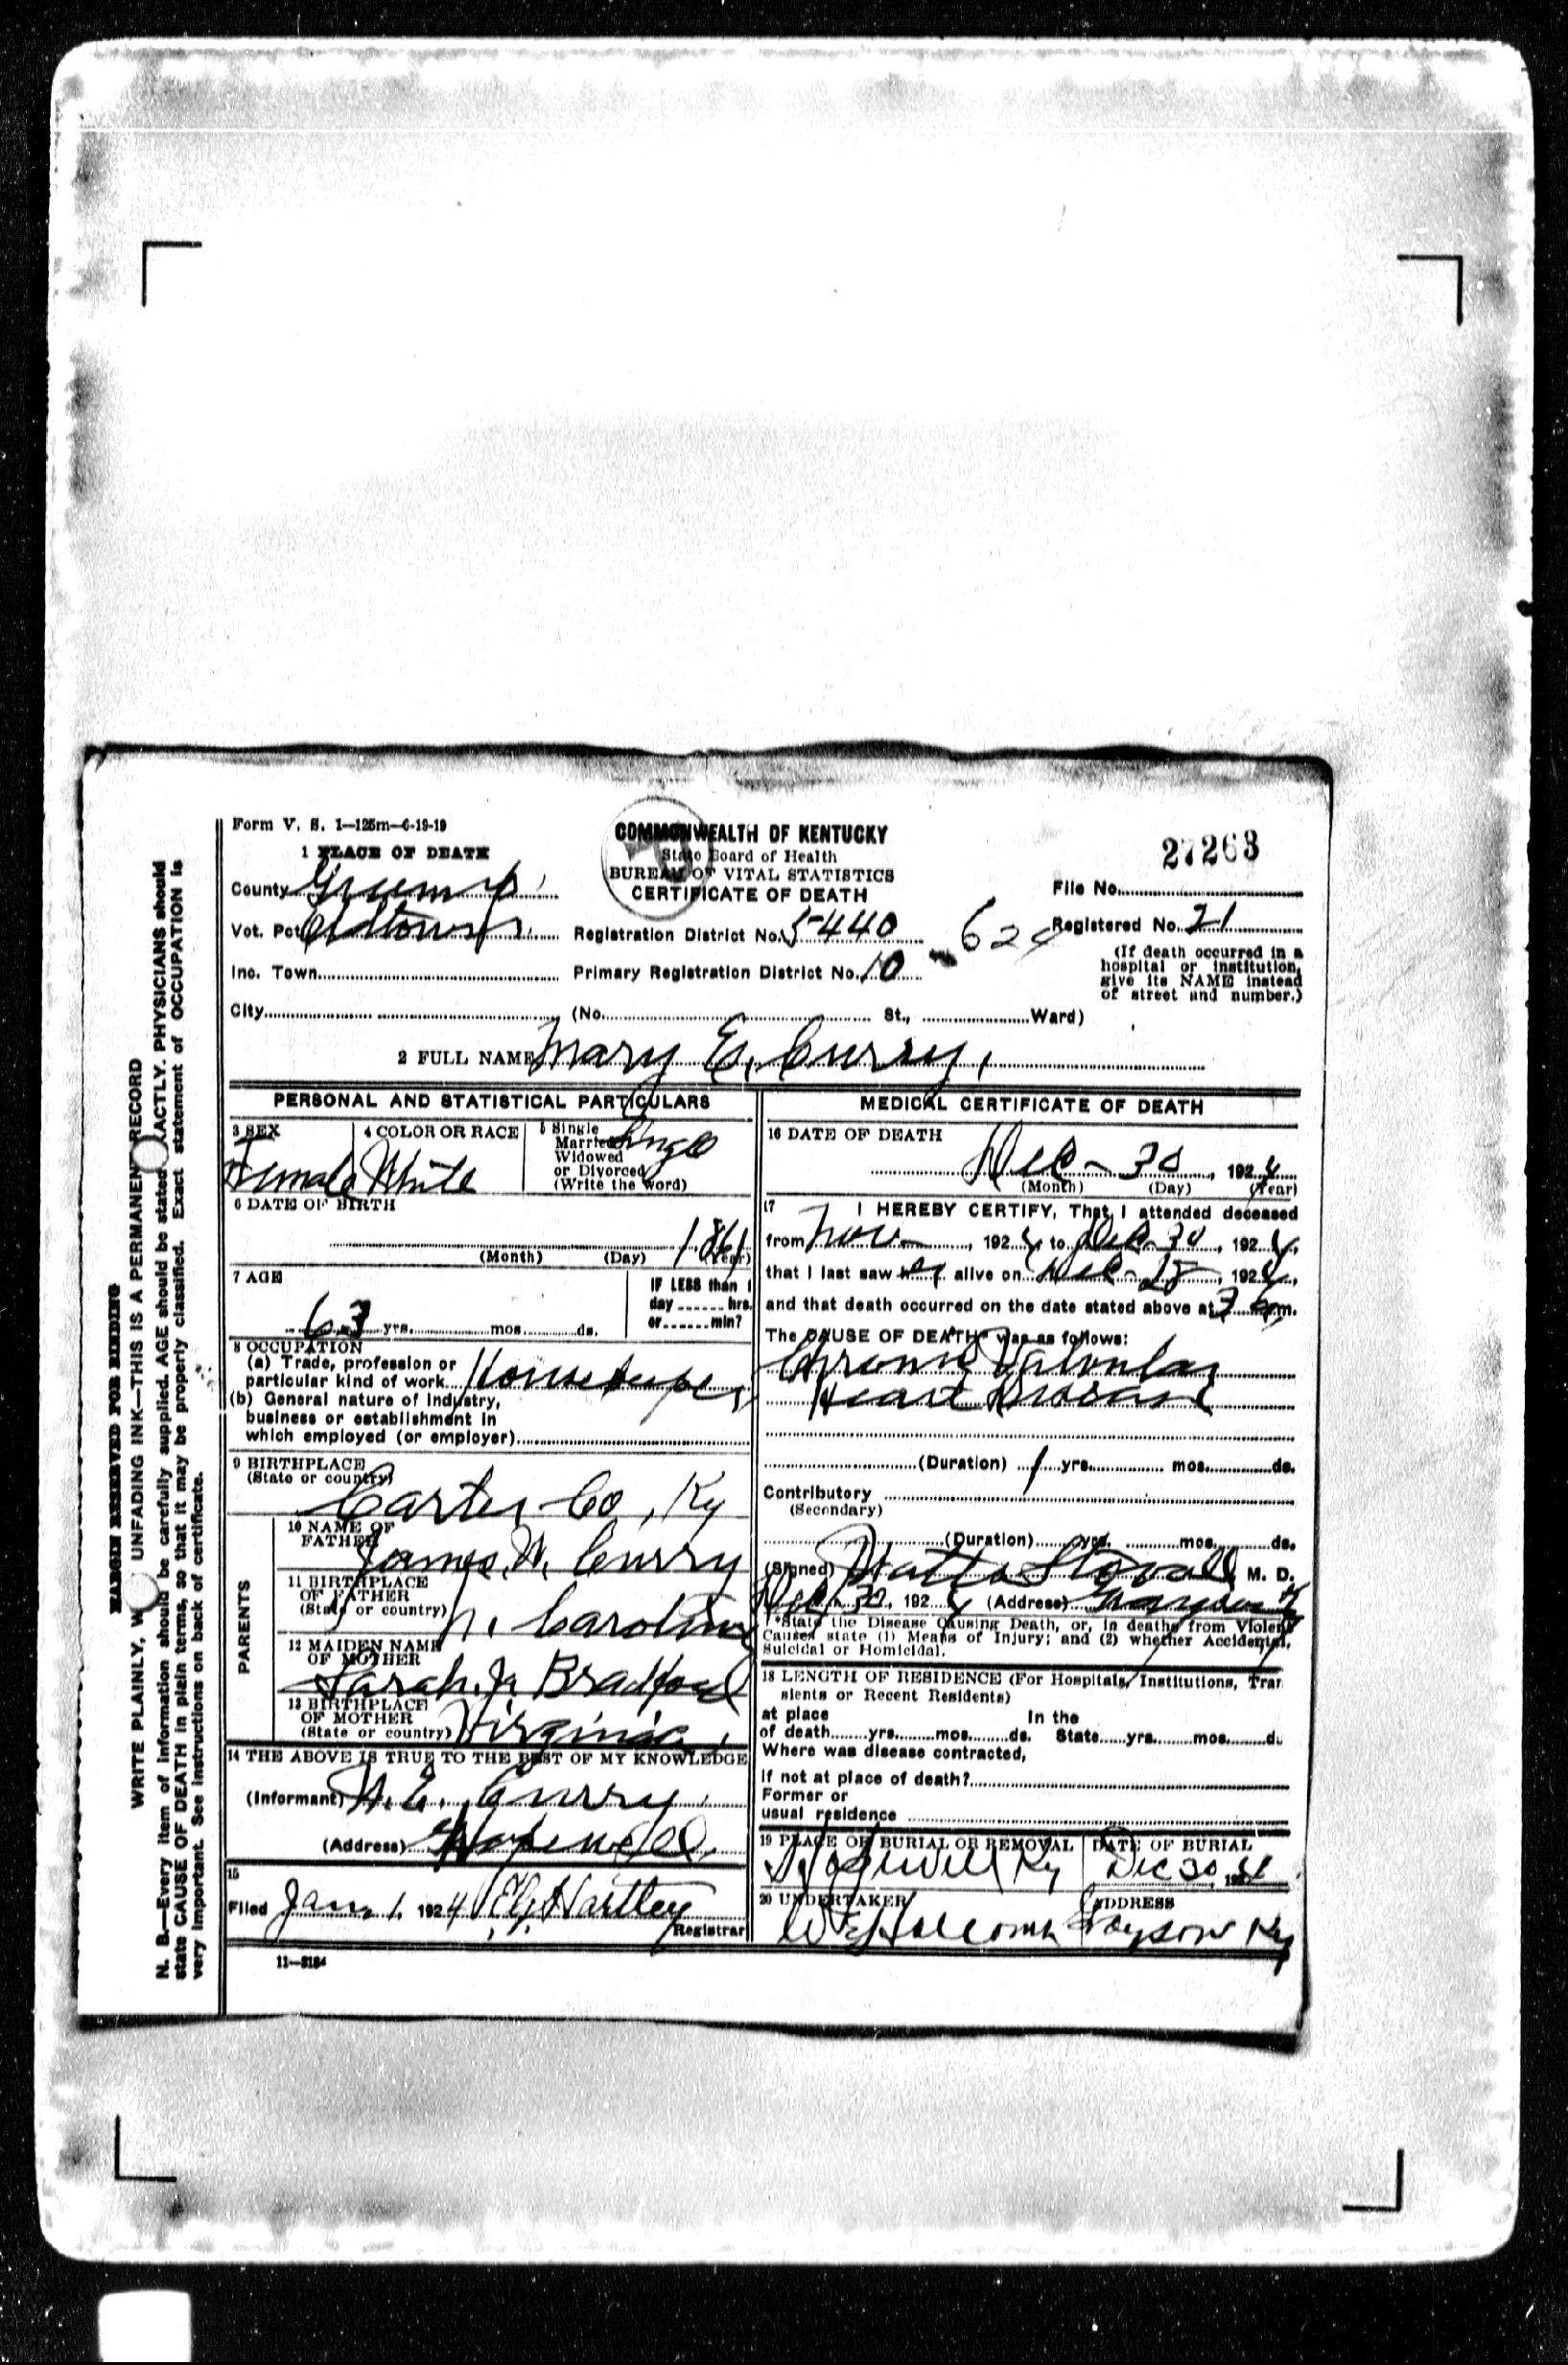 Form V. S. 1—125m—6-19-19
COMMONWEALTH OF KENTUCKY
State Board of Health
BUREAU OF VITAL STATISTICS
CERTIFICATE OF DEATH
27263
1 PLACE OF DEATH
County Greenup
File No.
Vot. Pct. Oldtown
Registration District No. 5-440
Registered No. 21
Inc. Town
Primary Registration District No. 10
(If death occurred in a
hospital or institution,
give its NAME instead
of street and number.)
City (No. St., Ward)
2 FULL NAME Mary E. Curry,
PERSONAL AND STATISTICAL PARTICULARS
3 SEX
Female
4 COLOR OR RACE
White
5 Single
Married
Widowed
or Divorced
(Write the word)
Single
6 DATE OF BIRTH
1861
(Month) (Day) (Year)
7 AGE
63 yrs. mos. ds.
IF LESS than 1
day hrs.
or min?
8 OCCUPATION
(a) Trade, profession or
particular kind of work Housekeeper
(b) General nature of industry,
business or establishment in
which employed (or employer)
9 BIRTHPLACE
(State or country)
Carter Co, Ky
PARENTS
10 NAME OF
FATHER
James W. Curry
11 BIRTHPLACE
OF FATHER
(State or country) N. Carolina
12 MAIDEN NAME
OF MOTHER
Sarah J. Bradford
13 BIRTHPLACE
OF MOTHER
(State or country) Virginia
14 THE ABOVE IS TRUE TO THE BEST OF MY KNOWLEDGE
(Informant) Curry
(Address) Hopewell
15
Filed Jan. 1. 1924 Hartley
Registrar
11—3184
MEDICAL CERTIFICATE OF DEATH
16 DATE OF DEATH
Dec - 30, 1924
(Month) (Day) (Year)
17 I HEREBY CERTIFY, That I attended deceased
from Nov, 1924, to Dec 30, 1924,
that I last saw her alive on Dec - , 1924,
and that death occurred on the date stated above at 3 m.
The CAUSE OF DEATH* was as follows:
Chronic Valvular
Heart Disease
(Duration) 1 yrs. mos. ds.
Contributory
(Secondary)
(Duration) yrs. mos. ds.
(Signed) Watts Stovall M. D.
Dec 30, 1924 (Address) Grayson Ky
*State the Disease Causing Death, or, in deaths from Violent
Causes state (1) Means of Injury; and (2) whether Accidental,
Suicidal or Homicidal.
18 LENGTH OF RESIDENCE (For Hospitals, Institutions, Tran
sients or Recent Residents)
at place In the
of death yrs. mos. ds. State yrs. mos. d
Where was disease contracted,
If not at place of death?
Former or
usual residence
19 PLACE OF BURIAL OR REMOVAL
Hopewell Ky
DATE OF BURIAL
Dec 30, 1924
20 UNDERTAKER
Holcomb
ADDRESS
Grayson Ky
MARGIN RESERVED FOR BINDING
WRITE PLAINLY, W UNFADING INK—THIS IS A PERMANENT RECORD
N. B.—Every item of information should be carefully supplied. AGE should be stated ACTLY. PHYSICIANS should
state CAUSE OF DEATH in plain terms, so that it may be properly classified. Exact statement of OCCUPATION is
very important. See instructions on back of certificate.